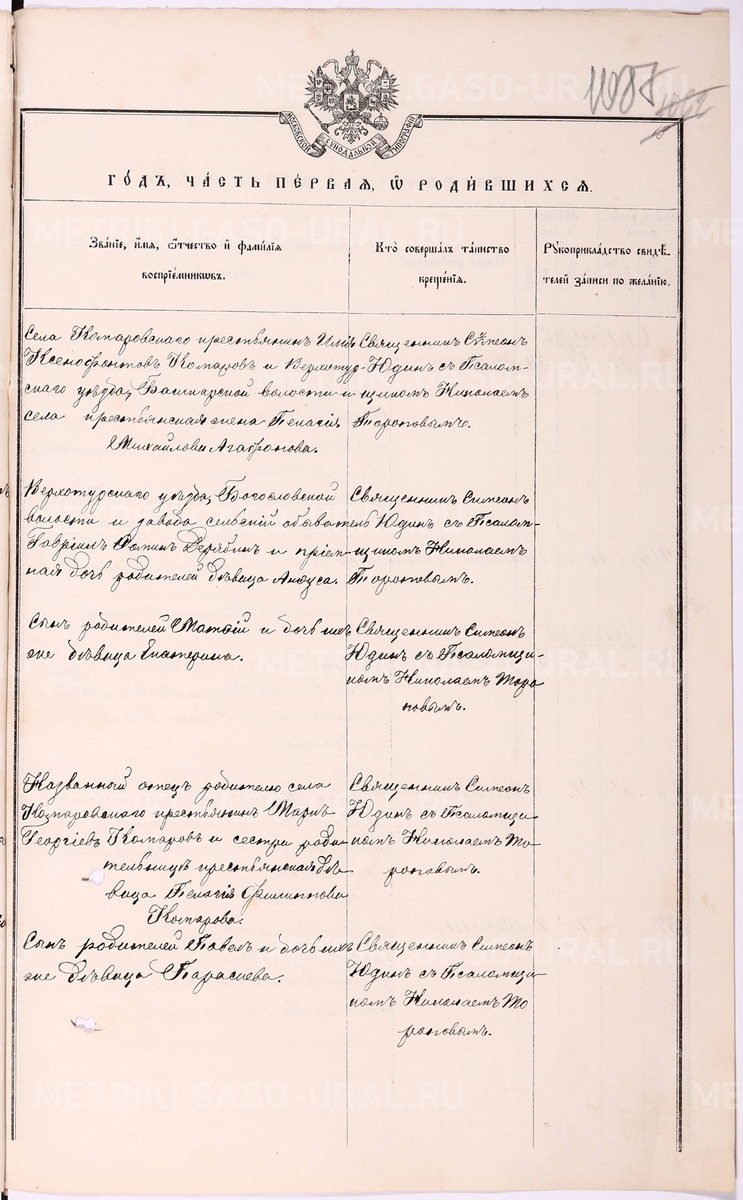 1087
МОСКОВСКОЙ СѴНОДАЛЬНОЙ ТИПОГРАФІИ
ГО́ДЪ, ЧА́СТЬ ПЕ́РВАЯ, Ѡ҆ РОДИ́ВШИХСЯ.
Зва́нїе, и҆́мя, ѻ҆́тчество и҆ фами́лїя
воспрїе́мникѡвъ.
Кто̀ соверша́лъ та́инство
креще́нїя.
Рꙋкоприкла́дство свидѣ́-
телей за́писи по жела́нїю.
Села Комаровскаго крестьянинъ Илія
Ксенофонтовъ Комаровъ и Верхотур-
скаго уѣзда, Башкарской волости и
села крестьянская жена Пелагія
Михайлова Агафонова.
Священникъ Симеонъ
Юдинъ съ Псалом-
щикомъ Николаемъ
Тороповымъ.
Верхотурскаго уѣзда, Богословской
волости и завода сельскій обыватель
Гавріилъ Фоминъ Дерябинъ и пріем-
ная дочь родителей дѣвица Анфуса.
Священникъ Симеонъ
Юдинъ съ Псалом-
щикомъ Николаемъ
Тороповымъ.
Сынъ родителей Матѳій и дочь ихъ
же дѣвица Екатерина.
Священникъ Симеонъ
Юдинъ съ Псаломщи-
комъ Николаемъ Торо
повымъ.
Названный отецъ родителю села
Комаровскаго крестьянинъ Маркъ
Георгіевъ Комаровъ и сестра роди-
тельницѣ крестьянская дѣ-
вица Пелагія Филиппова
Комарова.
Священникъ Симеонъ
Юдинъ съ Псаломщи-
комъ Николаемъ То-
роповымъ.
Сынъ родителей Павелъ и дочь ихъ
же дѣвица Параскева.
Священникъ Симеонъ
Юдинъ съ Псаломщи-
комъ Николаемъ То
роповымъ.
METRIKI.GASO-URAL.RU